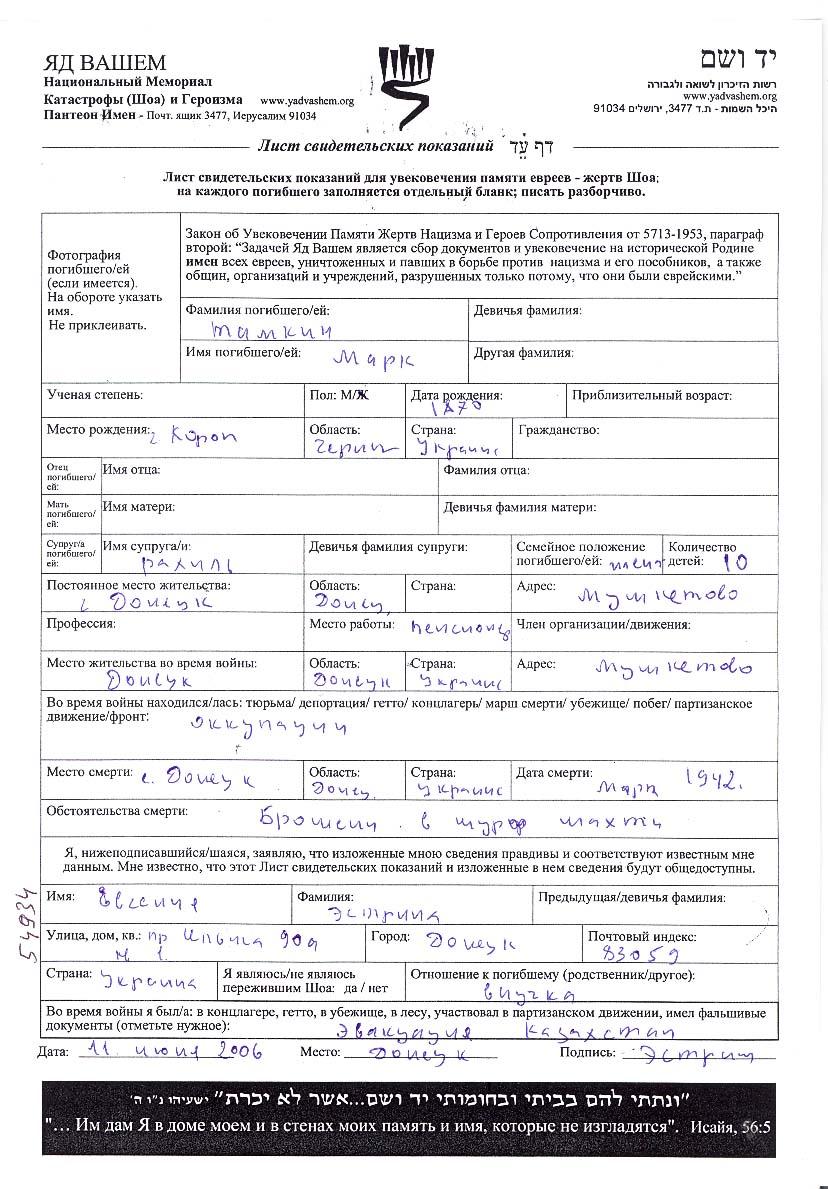 ЯД ВАШЕМ
Национальный Мемориал
Катастрофы (Шоа) и Героизма www.yadvashem.org
Пантеон Имен - Почт. ящик 3477, Иерусалим 91034
יד ושם
רשות הזיכרון לשואה ולגבורה
www.yadvashem.org
היכל השמות - ת.ד 3477, ירושלים 91034
Лист свидетельских показаний דף עֵד
Лист свидетельских показаний для увековечения памяти евреев - жертв Шоа;
на каждого погибшего заполняется отдельный бланк; писать разборчиво.
Фотография
погибшего/ей
(если имеется).
На обороте указать
имя.
Не приклеивать.
Закон об Увековечении Памяти Жертв Нацизма и Героев Сопротивления от 5713-1953, параграф
второй: “Задачей Яд Вашем является сбор документов и увековечение на исторической Родине
имен всех евреев, уничтоженных и павших в борьбе против нацизма и его пособников, а также
общин, организаций и учреждений, разрушенных только потому, что они были еврейскими.”
Фамилия погибшего/ей: Тамкин Девичья фамилия:
Имя погибшего/ей: Марк Другая фамилия:
Ученая степень: Пол: М/Ж Дата рождения: 1870 Приблизительный возраст:
Место рождения: г Короп Область: Черниг Страна: Украине Гражданство:
Отец погибшего/ей: Имя отца: Фамилия отца:
Мать погибшего/ей: Имя матери: Девичья фамилия матери:
Супруг/а погибшего/ей: Имя супруга/и: Рахиль Девичья фамилия супруги: Семейное положение погибшего/ей: Количество детей: 10
Постоянное место жительства: г Донецк Область: Донец. Страна: Адрес: Мушкетово
Профессия: Место работы: пенсионер Член организации/движения:
Место жительства во время войны: Донецк Область: Донецк Страна: Украине Адрес: Мушкетово
Во время войны находился/лась: тюрьма/ депортация/ гетто/ концлагерь/ марш смерти/ убежище/ побег/ партизанское
движение/фронт: оккупации
Место смерти: г. Донецк Область: Донец. Страна: Украине Дата смерти: Март 1942.
Обстоятельства смерти: Брошены в шурф шахты
Я, нижеподписавшийся/шаяся, заявляю, что изложенные мною сведения правдивы и соответствуют известным мне
данным. Мне известно, что этот Лист свидетельских показаний и изложенные в нем сведения будут общедоступны.
Имя: Евгения Фамилия: Эстрина Предыдущая/девичья фамилия:
Улица, дом, кв.: пр Ильича 90а Город: Донецк Почтовый индекс: 83059
Страна: Украина Я являюсь/не являюсь пережившим Шоа: да / нет Отношение к погибшему (родственник/другое): внучка
Во время войны я был/а: в концлагере, гетто, в убежище, в лесу, участвовал в партизанском движении, имел фальшивые
документы (отметьте нужное): Эвакуация Казахстан
Дата: 11 июня 2006 Место: Донецк Подпись: Эстрин
54934
"ונתתי להם בביתי ובחומותי יד ושם...אשר לא יכרת" ישעיהו נ"ו ה'
"... Им дам Я в доме моем и в стенах моих память и имя, которые не изгладятся". Исайя, 56:5